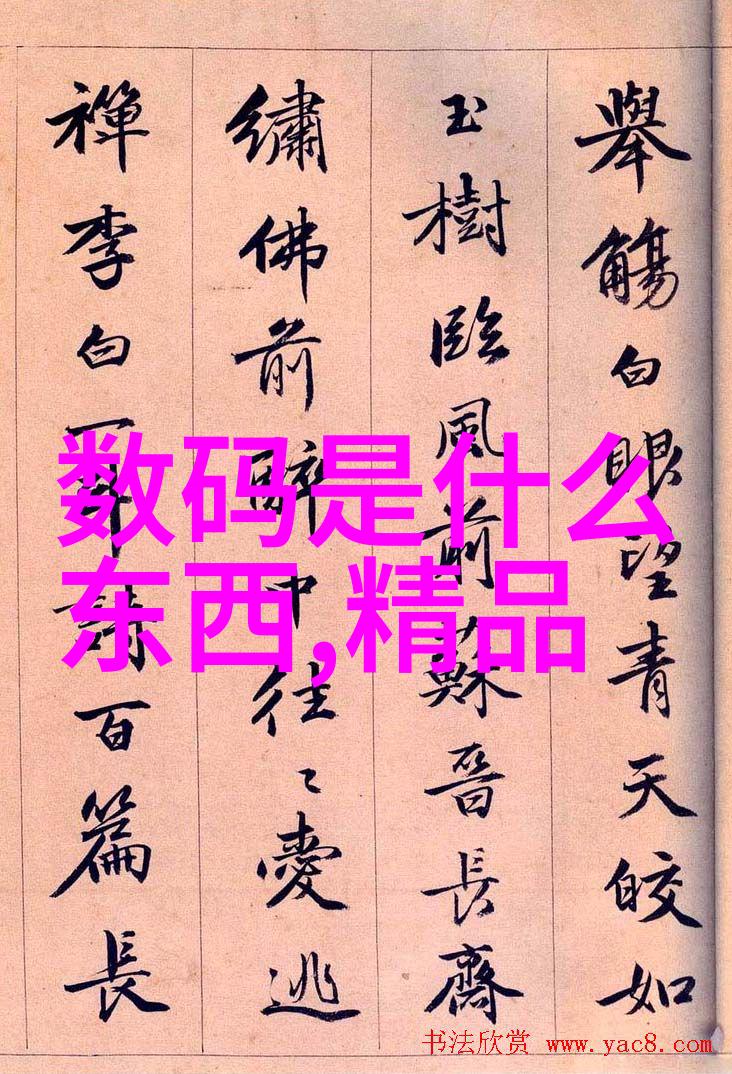 舉觴白眼望青天皎如
玉樹臨風前蘇晉長齋
繡佛前醉中往〻愛逃
禪李白一斗詩百篇長
数码是什么
东西,精品
书法欣赏 www.yac8.com